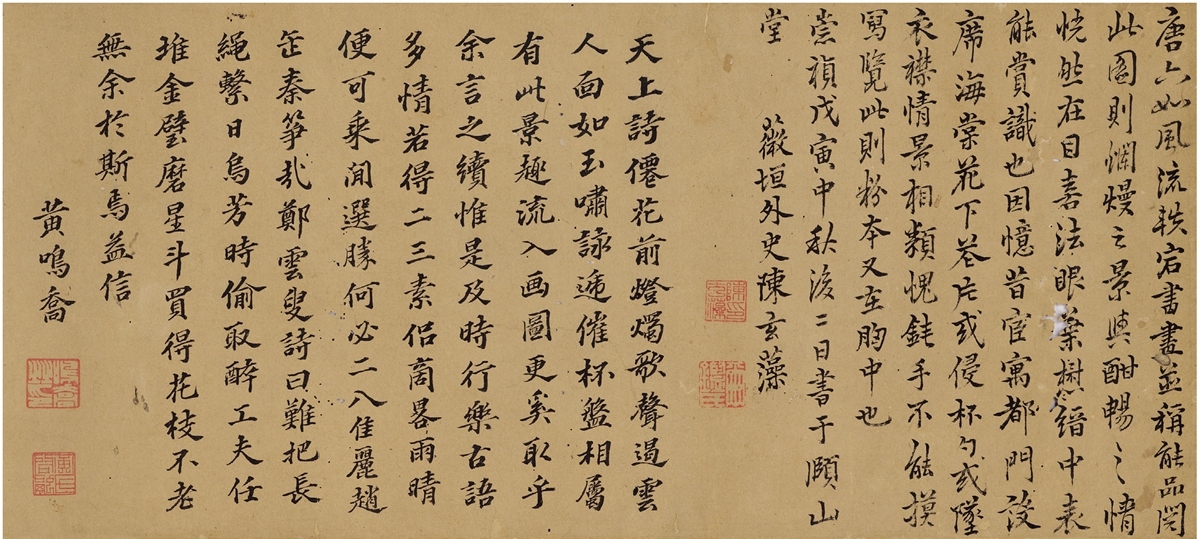 唐六如風流軼宕書畫並稱能品閱
此圖則爛熳之景與酣暢之情
恍然在目嘉法眼葉樹縉中表
能賞識也因憶昔宦寓都門設
席海棠花下花片或侵杯勺或墜
衣襟情景相類愧鈍手不能摸
寫覽此則粉本又在胸中也
崇禎戊寅中秋後二日書于願山
堂 薇垣外史陳玄藻
天上詩僊花前燈燭歌聲遏雲
人面如玉嘯詠遞催杯盤相屬
有此景趣流入画圖更奚取乎
余言之續惟是及時行樂古語
多情若得二三素侶商畧雨晴
便可乘閒選勝何必二八佳麗趙
缶秦箏哉鄭雲叟詩曰難把長
繩繫日烏芳時偷取醉工夫任
堆金璧磨星斗買得花枝不老
無余於斯焉益信
黃鳴喬